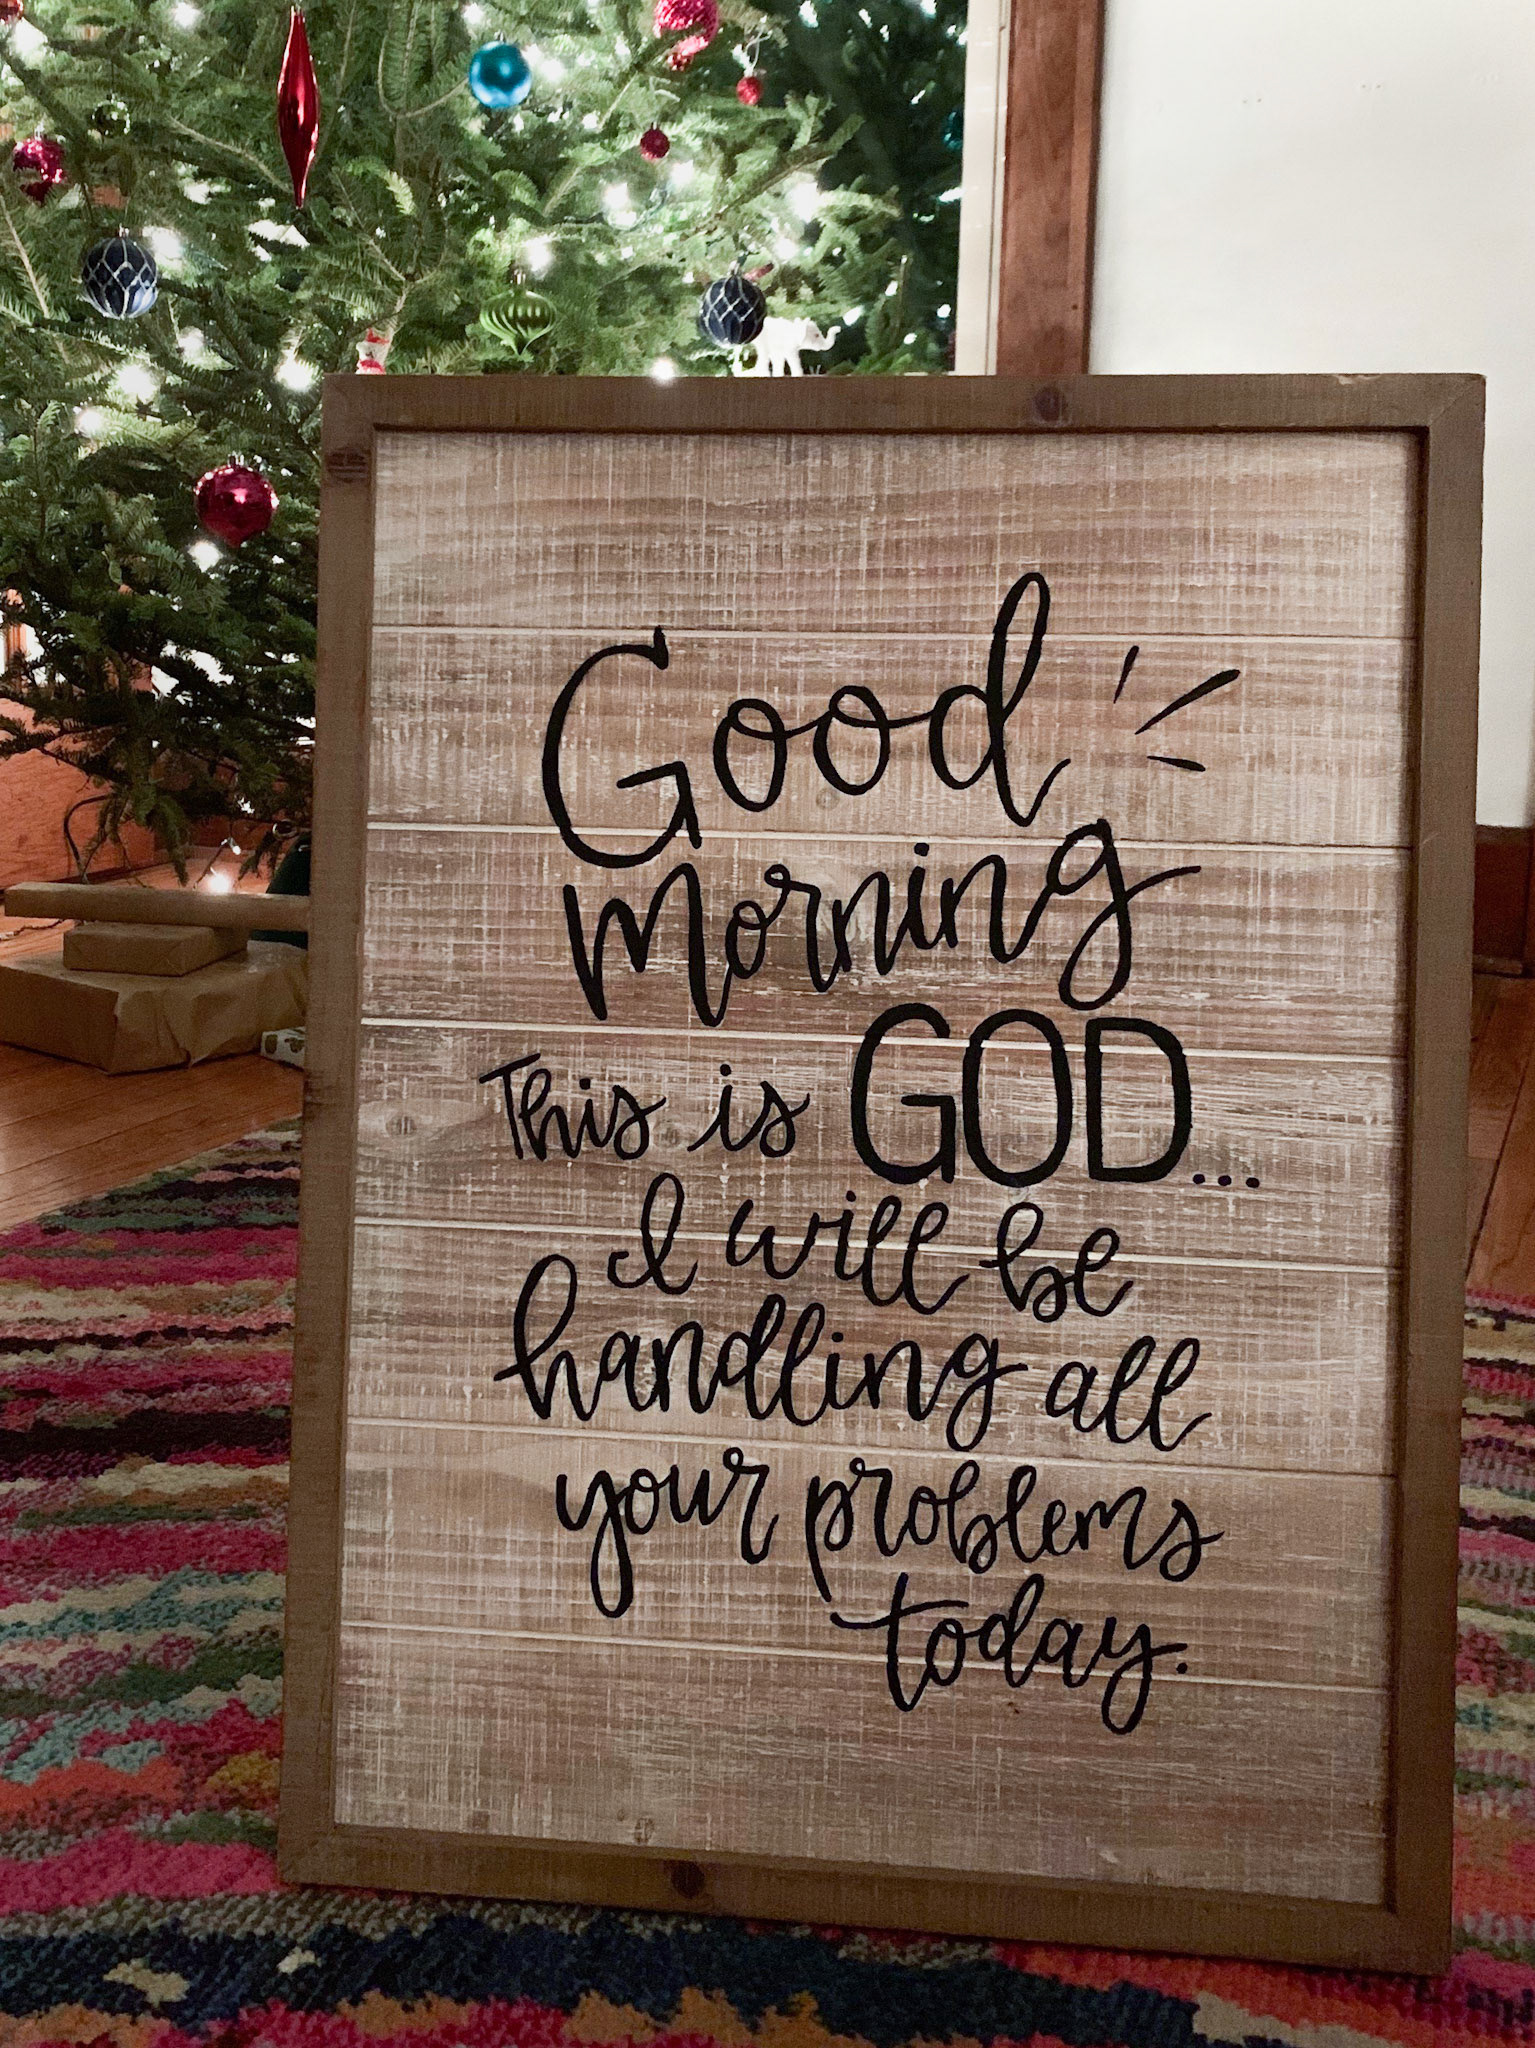 Good
Morning
This is GOD...
I will be
handling all
your problems
today.